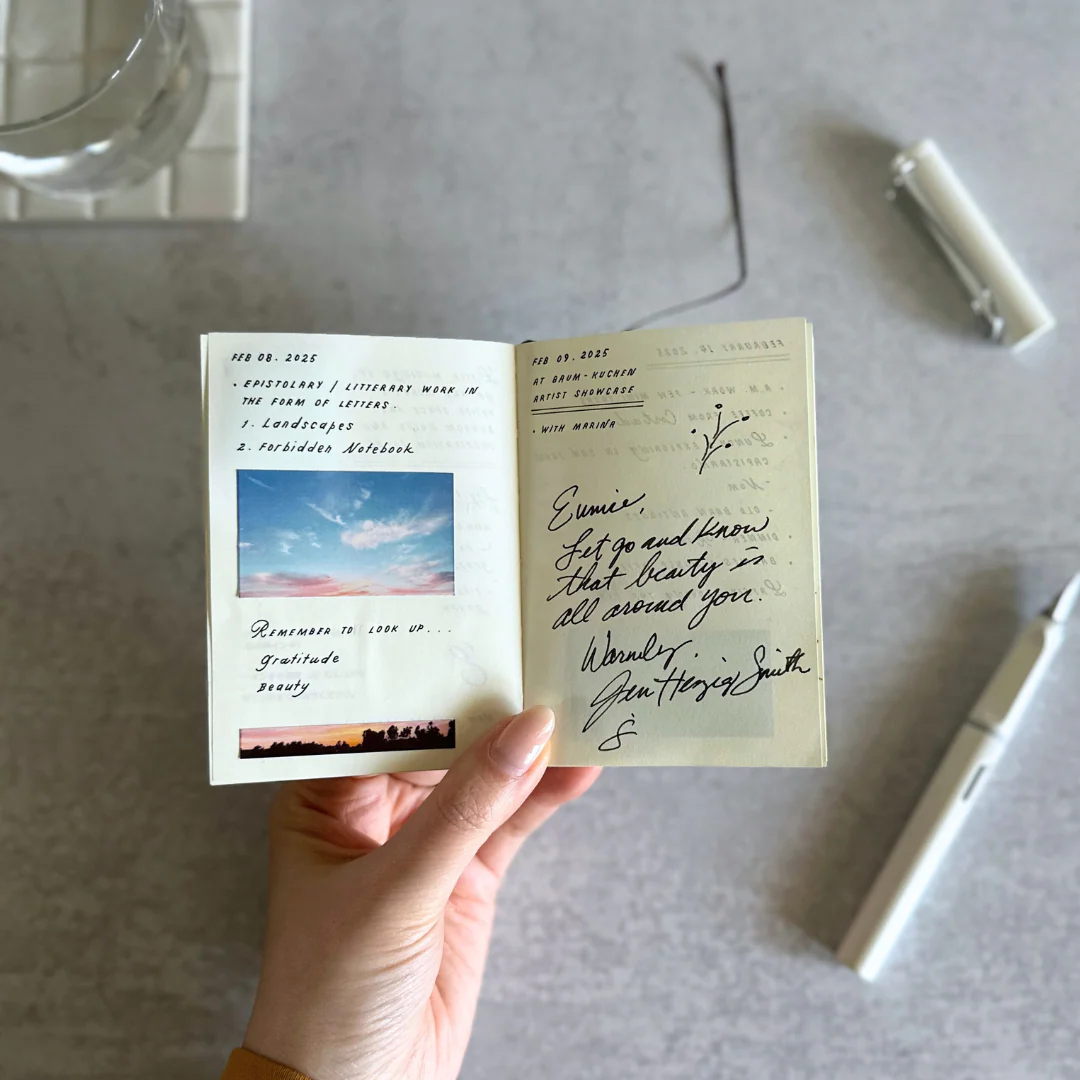 FEB 08. 2025
• EPISTOLARY / LITTERARY WORK IN
THE FORM OF LETTERS.
1. Landscapes
2. Forbidden Notebook
REMEMBER TO LOOK UP...
Gratitude
Beauty
FEB 09. 2025
AT BAUM-KUCHEN
ARTIST SHOWCASE
• WITH MARINA
Eunice,
Let go and know
that beauty is
all around you.
Warmly,
Jen Smith